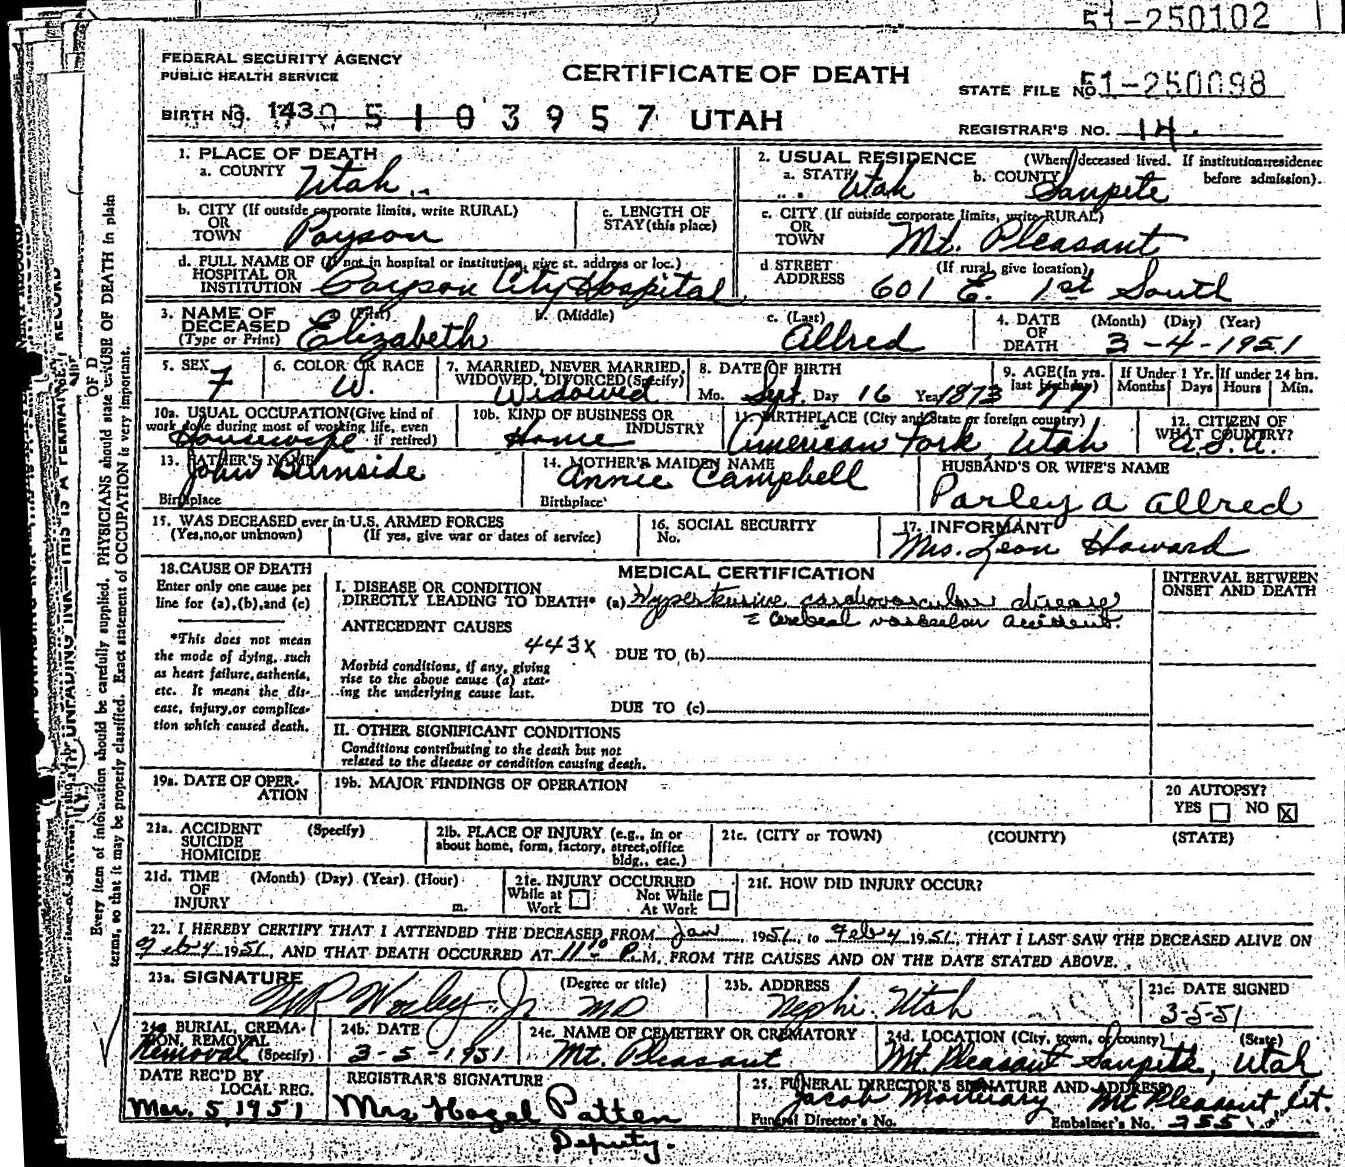 51-250102
FEDERAL SECURITY AGENCY
PUBLIC HEALTH SERVICE
CERTIFICATE OF DEATH
STATE FILE NO. 51-250098
BIRTH NO. 143 0 5 1 0 3 9 5 7 UTAH
REGISTRAR'S NO. 14.
1. PLACE OF DEATH
a. COUNTY Utah
2. USUAL RESIDENCE (Where deceased lived. If institution: residence before admission).
a. STATE Utah b. COUNTY Sanpete
b. CITY (If outside corporate limits, write RURAL)
OR
TOWN Payson
c. LENGTH OF
STAY (this place)
c. CITY (If outside corporate limits, write RURAL)
OR
TOWN Mt. Pleasant
d. FULL NAME OF (If not in hospital or institution, give st. address or loc.)
HOSPITAL OR
INSTITUTION Payson City Hospital
d STREET (If rural, give location)
ADDRESS 601 E. 1st South
3. NAME OF (First) b. (Middle) c. (Last)
DECEASED
(Type or Print) Elizabeth Allred
4. DATE (Month) (Day) (Year)
OF
DEATH 3-4-1951
5. SEX F
6. COLOR OR RACE W.
7. MARRIED, NEVER MARRIED,
WIDOWED, DIVORCED (Specify)
Widowed
8. DATE OF BIRTH
Mo. Sept. Day 16 Year 1873
9. AGE (In yrs.
last birthday) 77
If Under 1 Yr. Months Days
If under 24 hrs. Hours Min.
10a. USUAL OCCUPATION (Give kind of
work done during most of working life, even
if retired)
Housewife
10b. KIND OF BUSINESS OR
INDUSTRY
Home
11. BIRTHPLACE (City and State or foreign country)
American Fork, Utah
12. CITIZEN OF
WHAT COUNTRY?
U.S.A.
13. FATHER'S NAME
John Burnside
Birthplace
14. MOTHER'S MAIDEN NAME
Annie Campbell
Birthplace
HUSBAND'S OR WIFE'S NAME
Parley A Allred
15. WAS DECEASED ever in U.S. ARMED FORCES
(Yes, no, or unknown) (If yes, give war or dates of service)
16. SOCIAL SECURITY
No.
17. INFORMANT
Mrs. Leon Howard
18. CAUSE OF DEATH
Enter only one cause per
line for (a), (b), and (c)
*This does not mean
the mode of dying, such
as heart failure, asthenia,
etc. It means the dis-
ease, injury, or complica-
tion which caused death.
MEDICAL CERTIFICATION
INTERVAL BETWEEN
ONSET AND DEATH
I. DISEASE OR CONDITION
DIRECTLY LEADING TO DEATH* (a) Hypertensive cardiovascular disease
ANTECEDENT CAUSES
443X DUE TO (b)
Morbid conditions, if any, giving
rise to the above cause (a) stat-
ing the underlying cause last.
DUE TO (c)
II. OTHER SIGNIFICANT CONDITIONS
Conditions contributing to the death but not
related to the disease or condition causing death.
19a. DATE OF OPER-
ATION
19b. MAJOR FINDINGS OF OPERATION
20 AUTOPSY?
YES NO X
21a. ACCIDENT (Specify)
SUICIDE
HOMICIDE
21b. PLACE OF INJURY (e.g., in or
about home, form, factory, street, office
bldg., eac.)
21c. (CITY or TOWN) (COUNTY) (STATE)
21d. TIME (Month) (Day) (Year) (Hour)
OF
INJURY m.
21e. INJURY OCCURRED
While at Work Not While At Work
21f. HOW DID INJURY OCCUR?
22. I HEREBY CERTIFY THAT I ATTENDED THE DECEASED FROM Jan 1951, to Feb 4 1951, THAT I LAST SAW THE DECEASED ALIVE ON
Feb 4 1951, AND THAT DEATH OCCURRED AT 11 P.M. FROM THE CAUSES AND ON THE DATE STATED ABOVE.
23a. SIGNATURE (Degree or title)
Worley Jr MD
23b. ADDRESS
Nephi, Utah
23c. DATE SIGNED
3-5-51
24a BURIAL, CREMA-
TION, REMOVAL
(Specify) Removal
24b. DATE
3-5-1951
24c. NAME OF CEMETERY OR CREMATORY
Mt. Pleasant
24d. LOCATION (City, town, or county) (State)
Mt. Pleasant Sanpete, Utah
DATE REC'D BY
LOCAL REG.
Mar. 5, 1951
REGISTRAR'S SIGNATURE
Mrs Hazel Patten
Deputy.
25. FUNERAL DIRECTOR'S SIGNATURE AND ADDRESS
Jacob Mortuary Mt Pleasant, Ut.
Funeral Director's No. Embalmer's No. 255
Every item of information should be carefully supplied. PHYSICIANS should state CAUSE OF DEATH in plain
terms, so that it may be properly classified. Exact statement of OCCUPATION is very important.